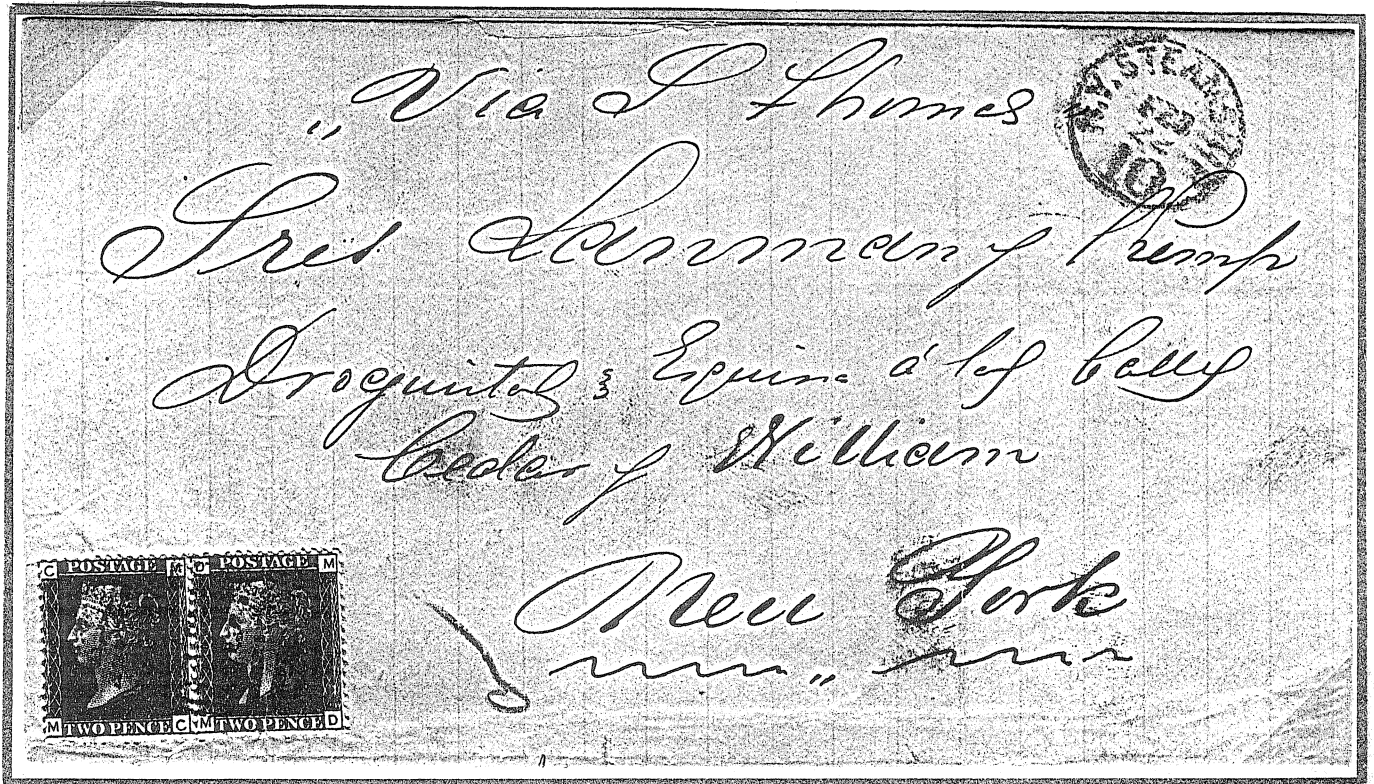 „ Via S Thomes
N.Y. STEAMSHIP
10
Sres Lanman y Kemp
Droguistas Esquina á las Calles
Cedar y William
New York
C POSTAGE M D POSTAGE M
M TWO PENCE C M TWO PENCE D